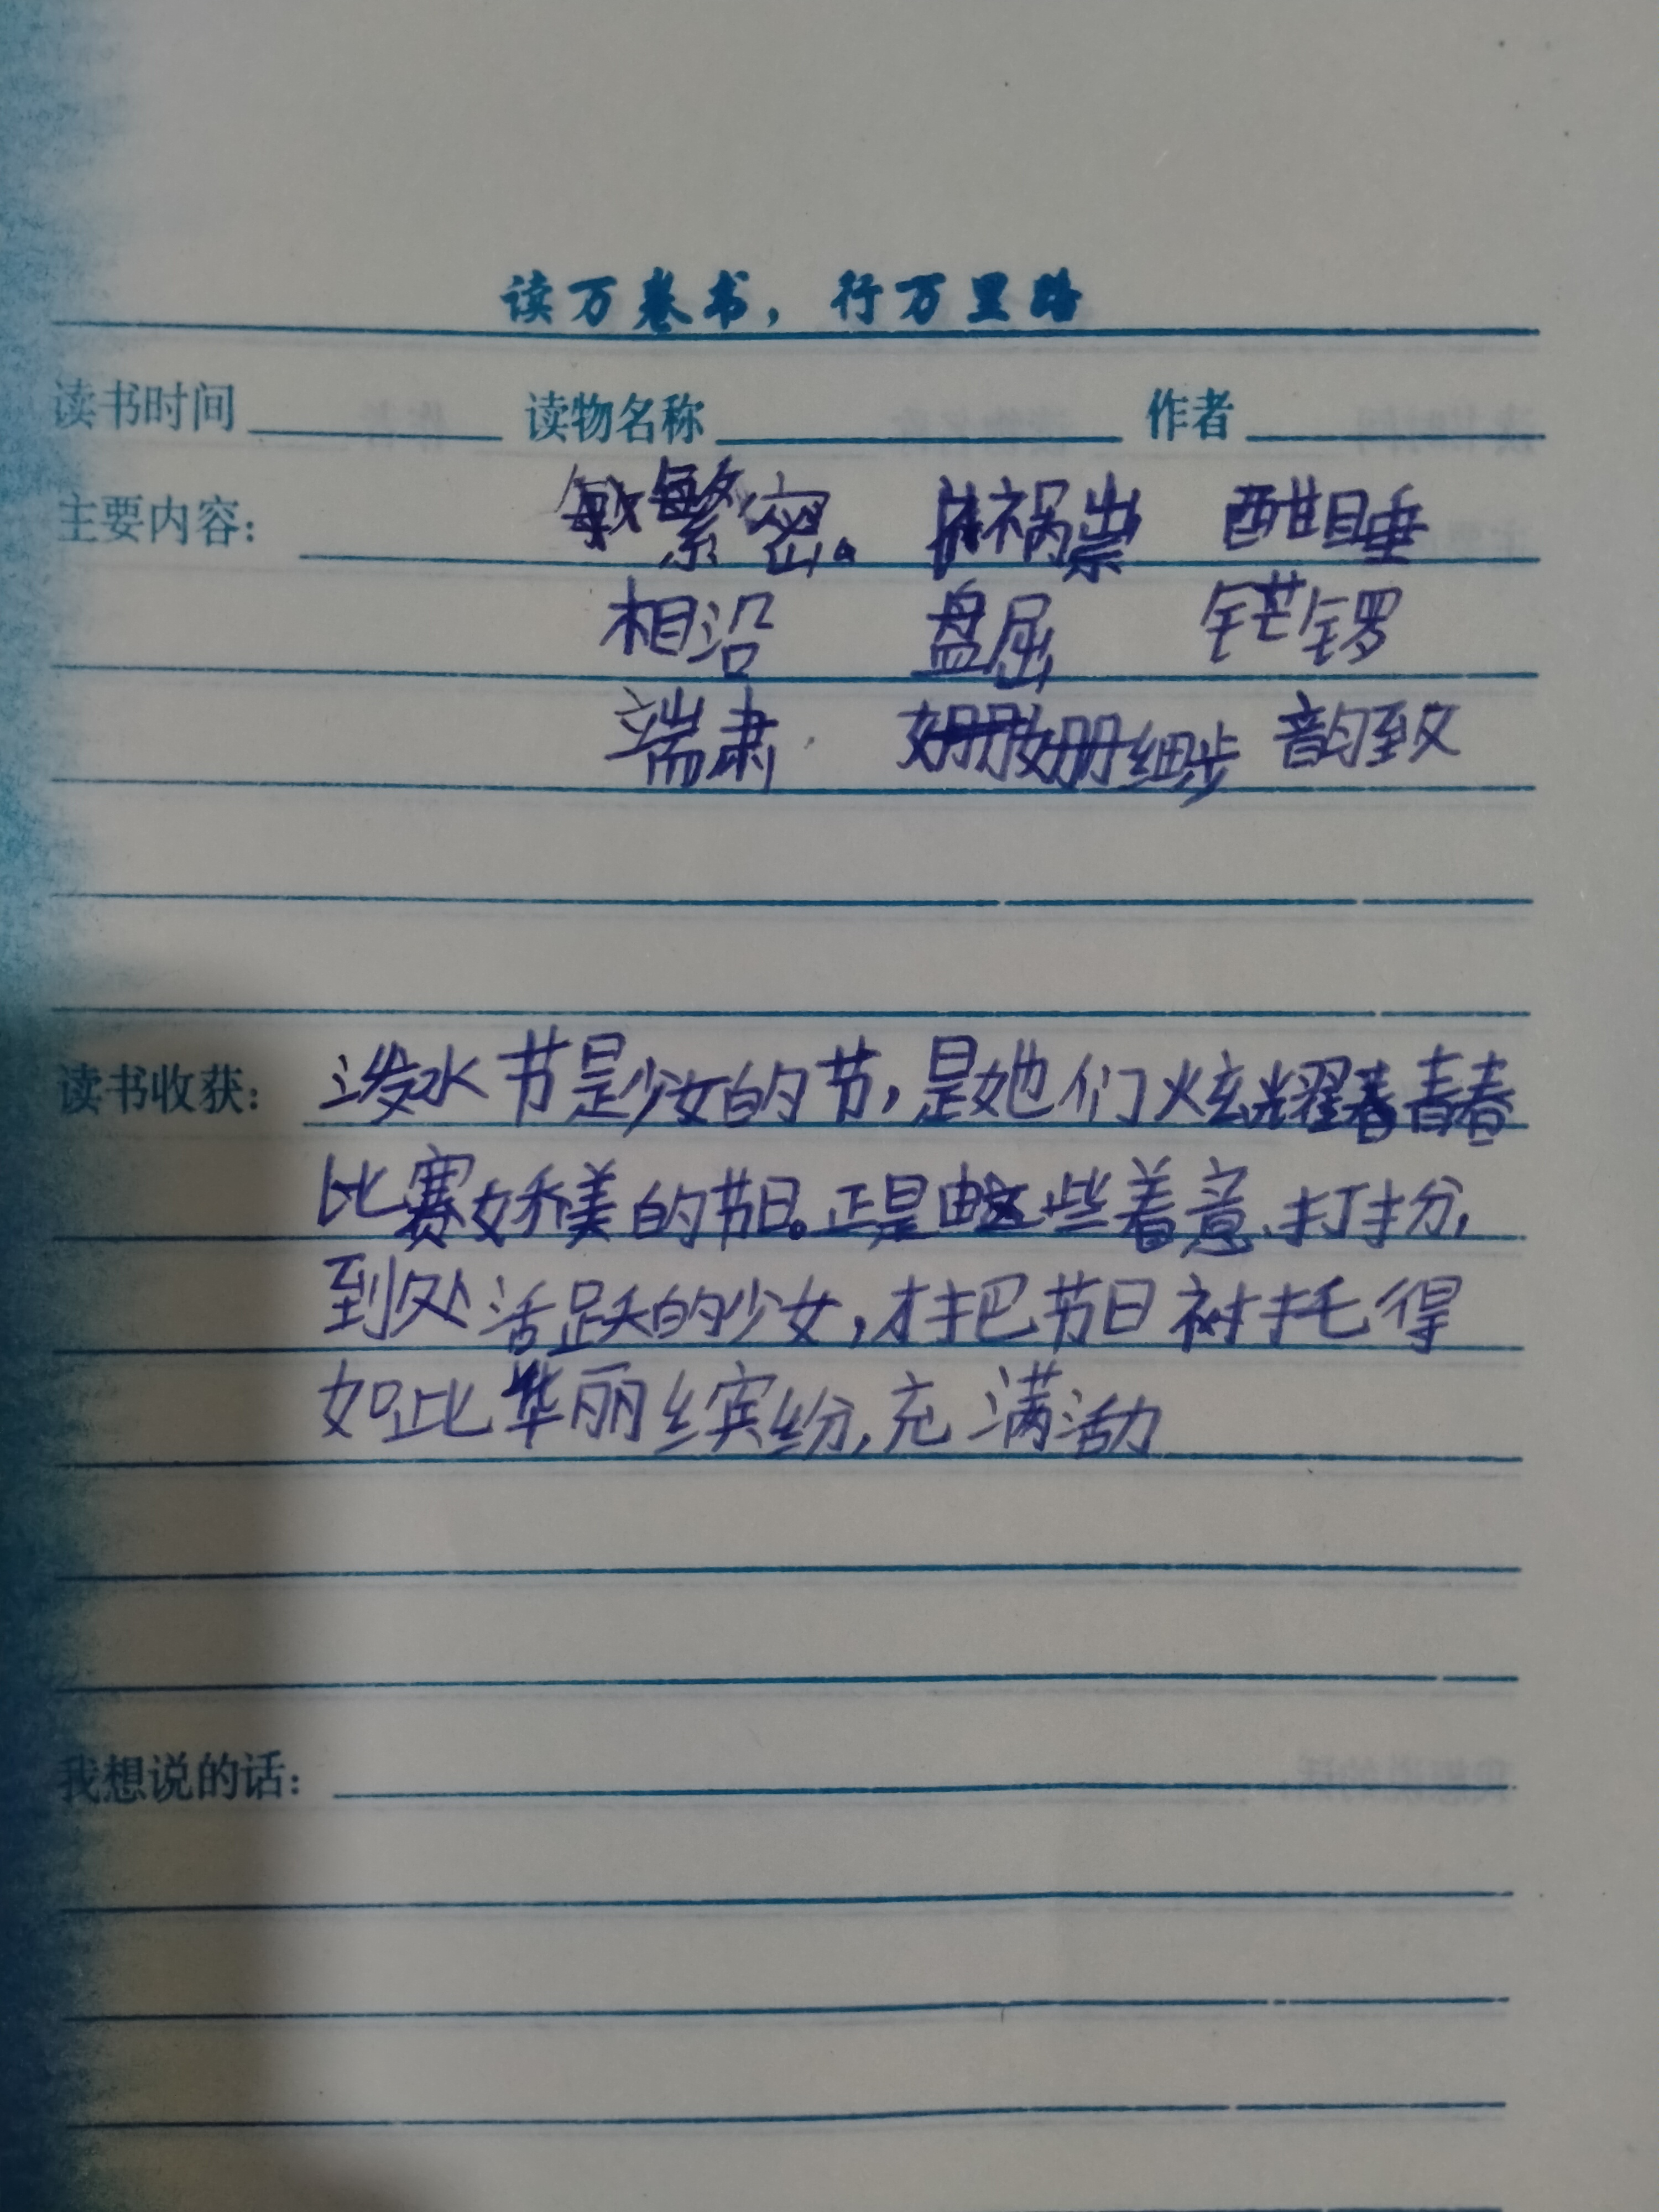 读万卷书，行万里路
读书时间 读物名称 作者
主要内容： 繁密。 祸祟 酣睡
相沿 盘屈 铓锣
端肃 姗姗细步 韵致
读书收获： 泼水节是少女的节，是她们炫耀青春
比赛娇美的节日。正是由这些着意打扮，
到处活跃的少女，才把节日衬托得
如此华丽缤纷，充满活力
我想说的话：